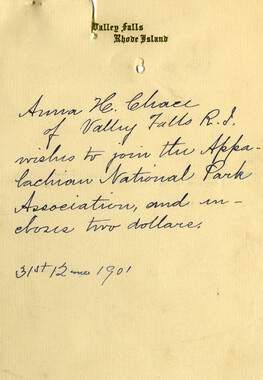 Valley Falls
Rhode Island
Anna H. Chace
of Valley Falls R.I.
wishes to join the Appa-
lachian National Park
Association, and in-
closes two dollars.
31st 12 mo 1901